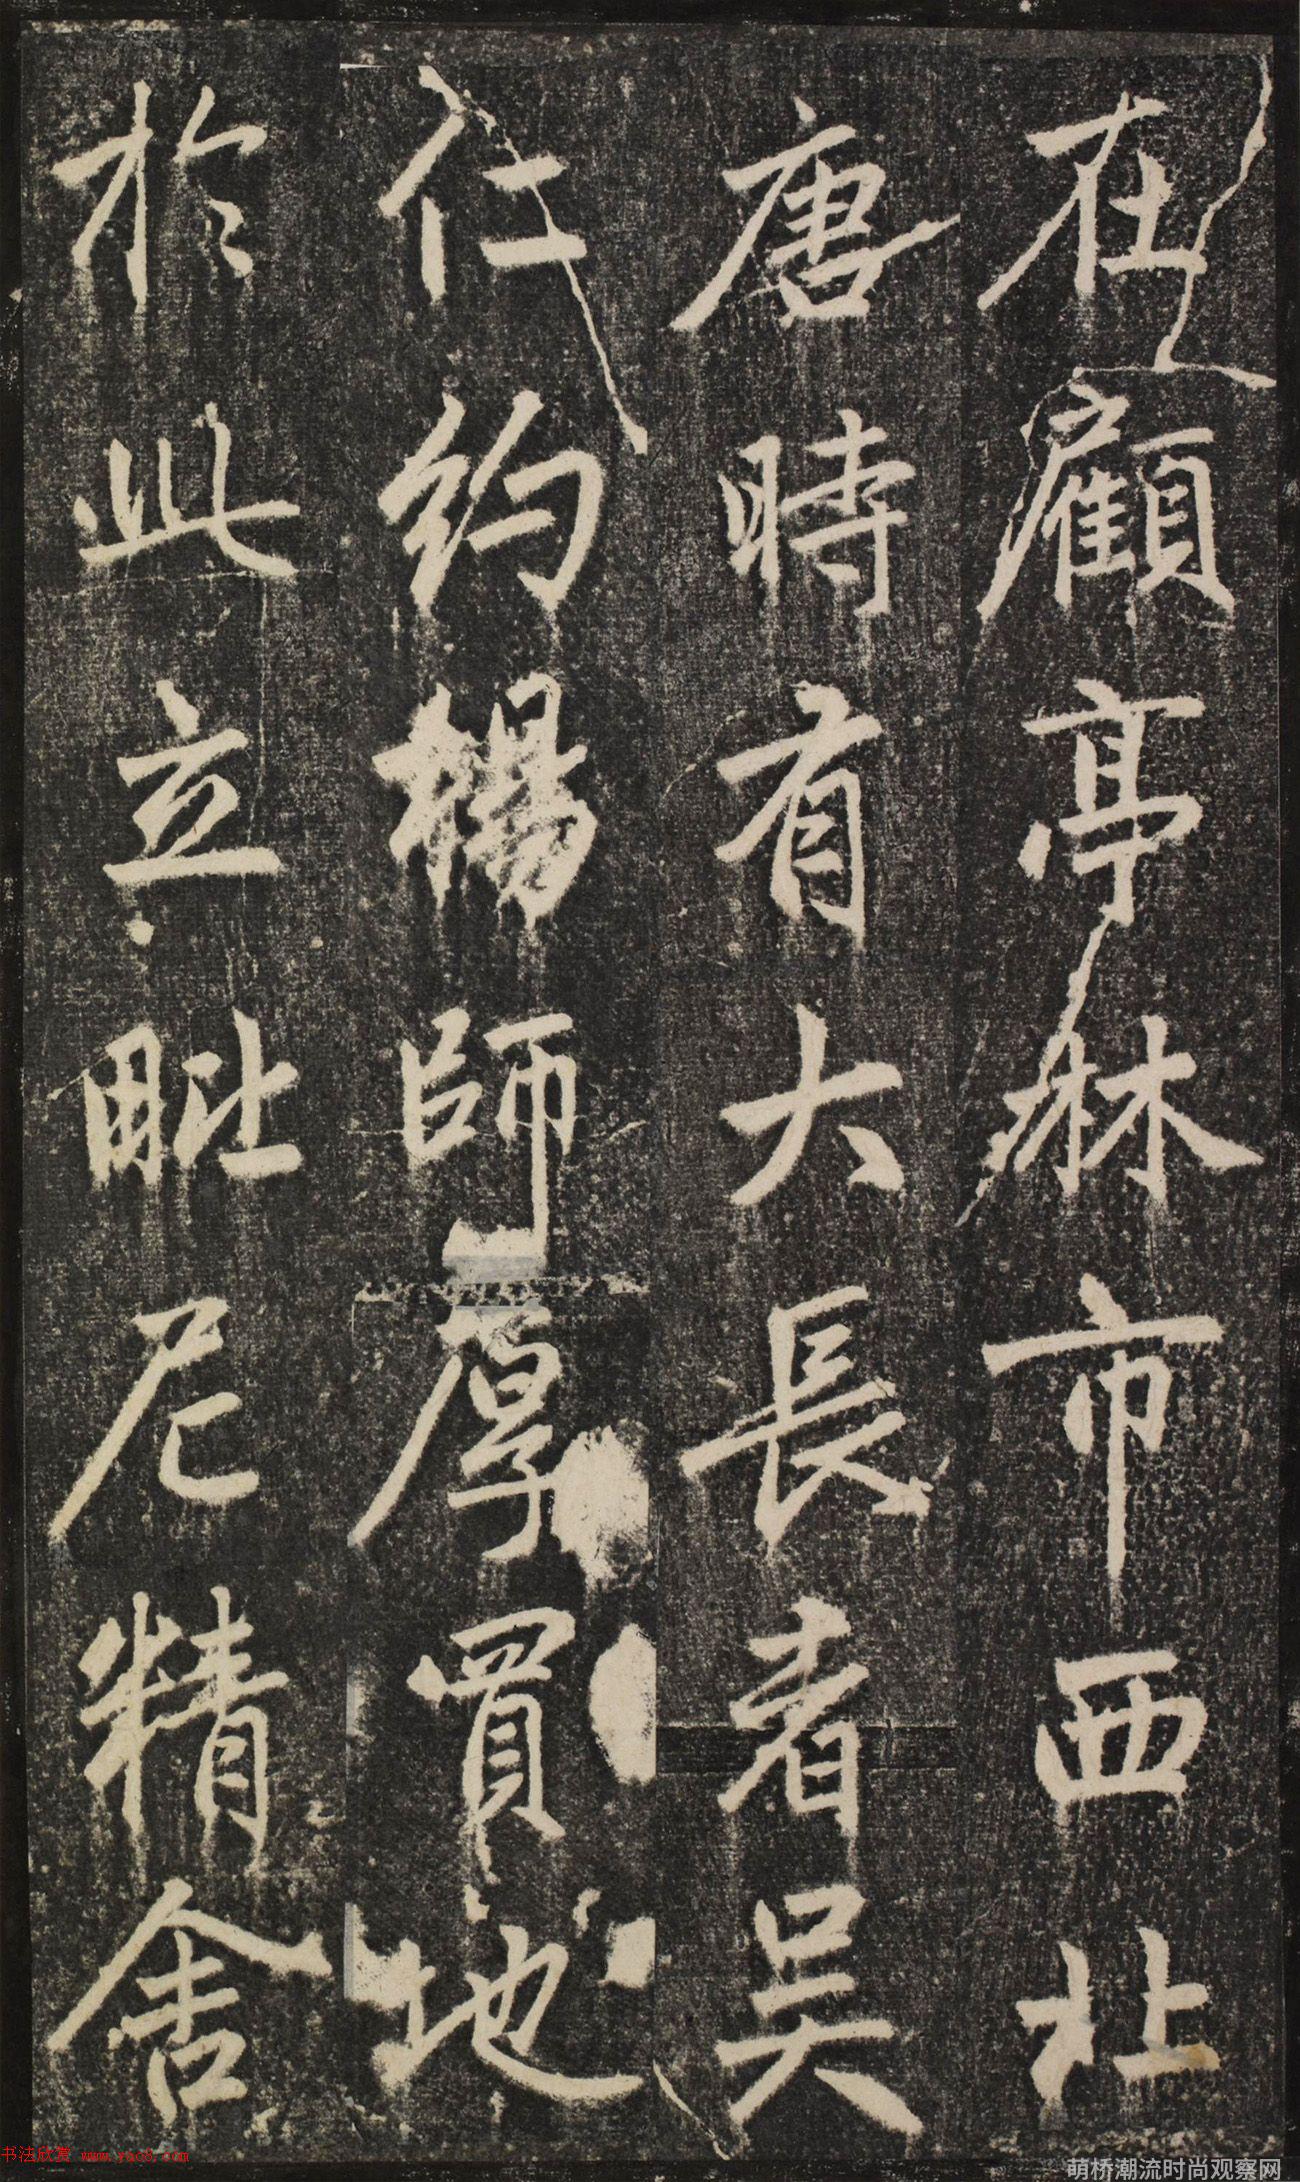 在顧亭林市西北
唐時有大長者吳
仁約楊師厚買地
於此立毗尼精舍
书法欣赏 www.yac8.com
萌桥潮流时尚观察网